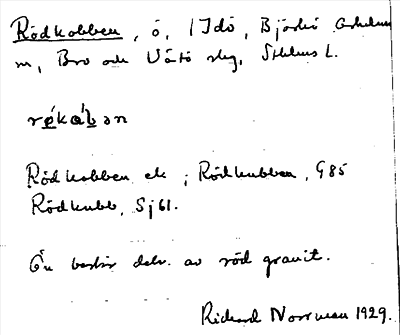 Rödkobben, ö, Idö, Björkö Arholma
m, Bro och Vätö skg, Sthlms L.
røkábən
Rödkobben ek; Rödkubben, G85
Rödkubb, Sj61.
Ön består delv. av röd granit.
Richard Norrman 1929.